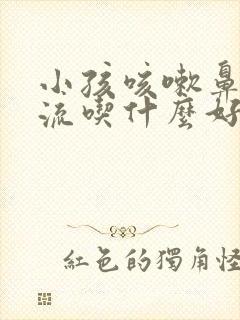 小孩咳嗽鼻
流喫什麼好
紅色的獨角怪